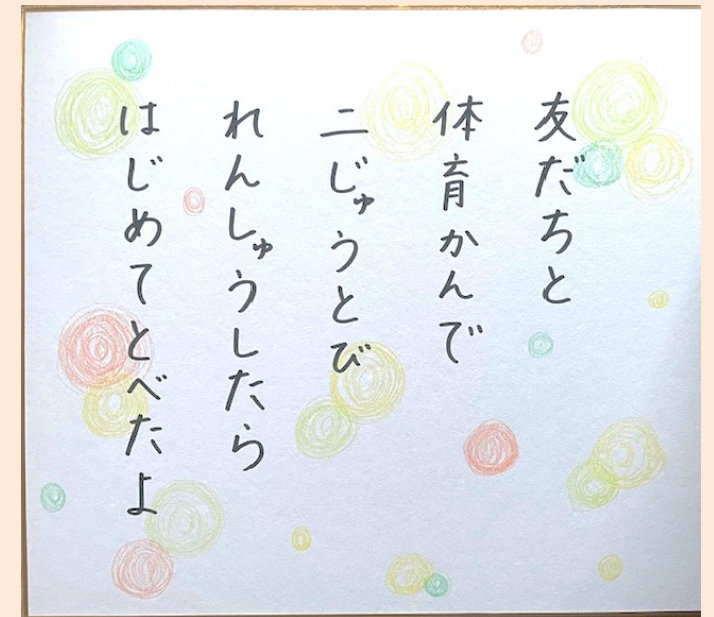 友だちと
体育かんで
二じゅうとび
れんしゅうしたら
はじめてとべたよ